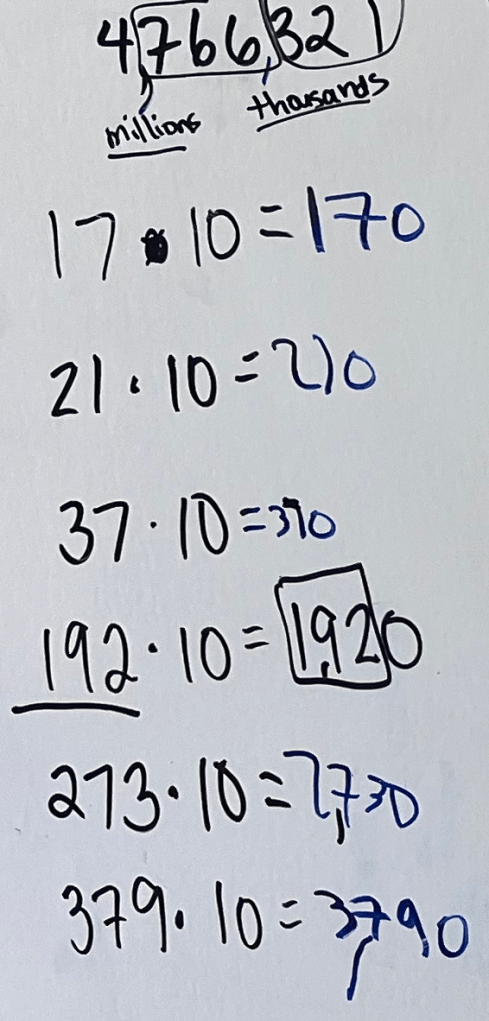 4,766,321
millions thousands
17 • 10 = 170
21 · 10 = 210
37 · 10 = 370
192 · 10 = 1,920
273 · 10 = 2,730
379 · 10 = 3,790